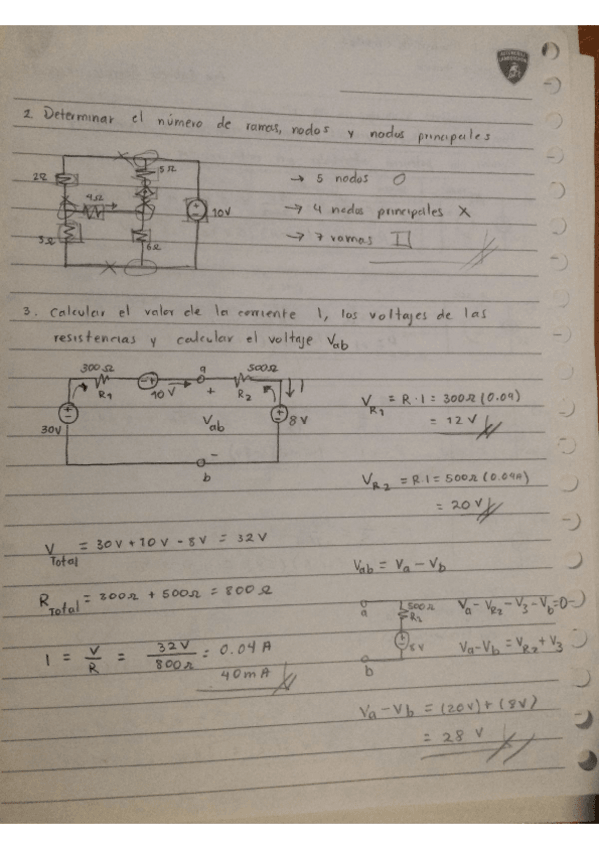 2. Determinar el número de ramas, nodos y nodos principales
5Ω
2Ω
4Ω
10V
3Ω
6Ω
→ 5 nodos O
→ 4 nodos principales X
→ 7 ramas
3. Calcular el valor de la corriente I, los voltajes de las
resistencias y calcular el voltaje Vab
300Ω
a
500Ω
R1
10V
+
R2
I
30V
Vab
8V
-
b
V_R1 = R·I = 300Ω(0.04)
= 12V
V_R2 = R·I = 500Ω(0.04A)
= 20V
V Total = 30V + 10V - 8V = 32V
R Total = 300Ω + 500Ω = 800Ω
I = V/R = 32V/800Ω = 0.04A
40mA
Vab = Va - Vb
a
500Ω
R2
8V
b
Va - V_R2 - V3 - Vb = 0
Va - Vb = V_R2 + V3
Va - Vb = (20V) + (8V)
= 28 V